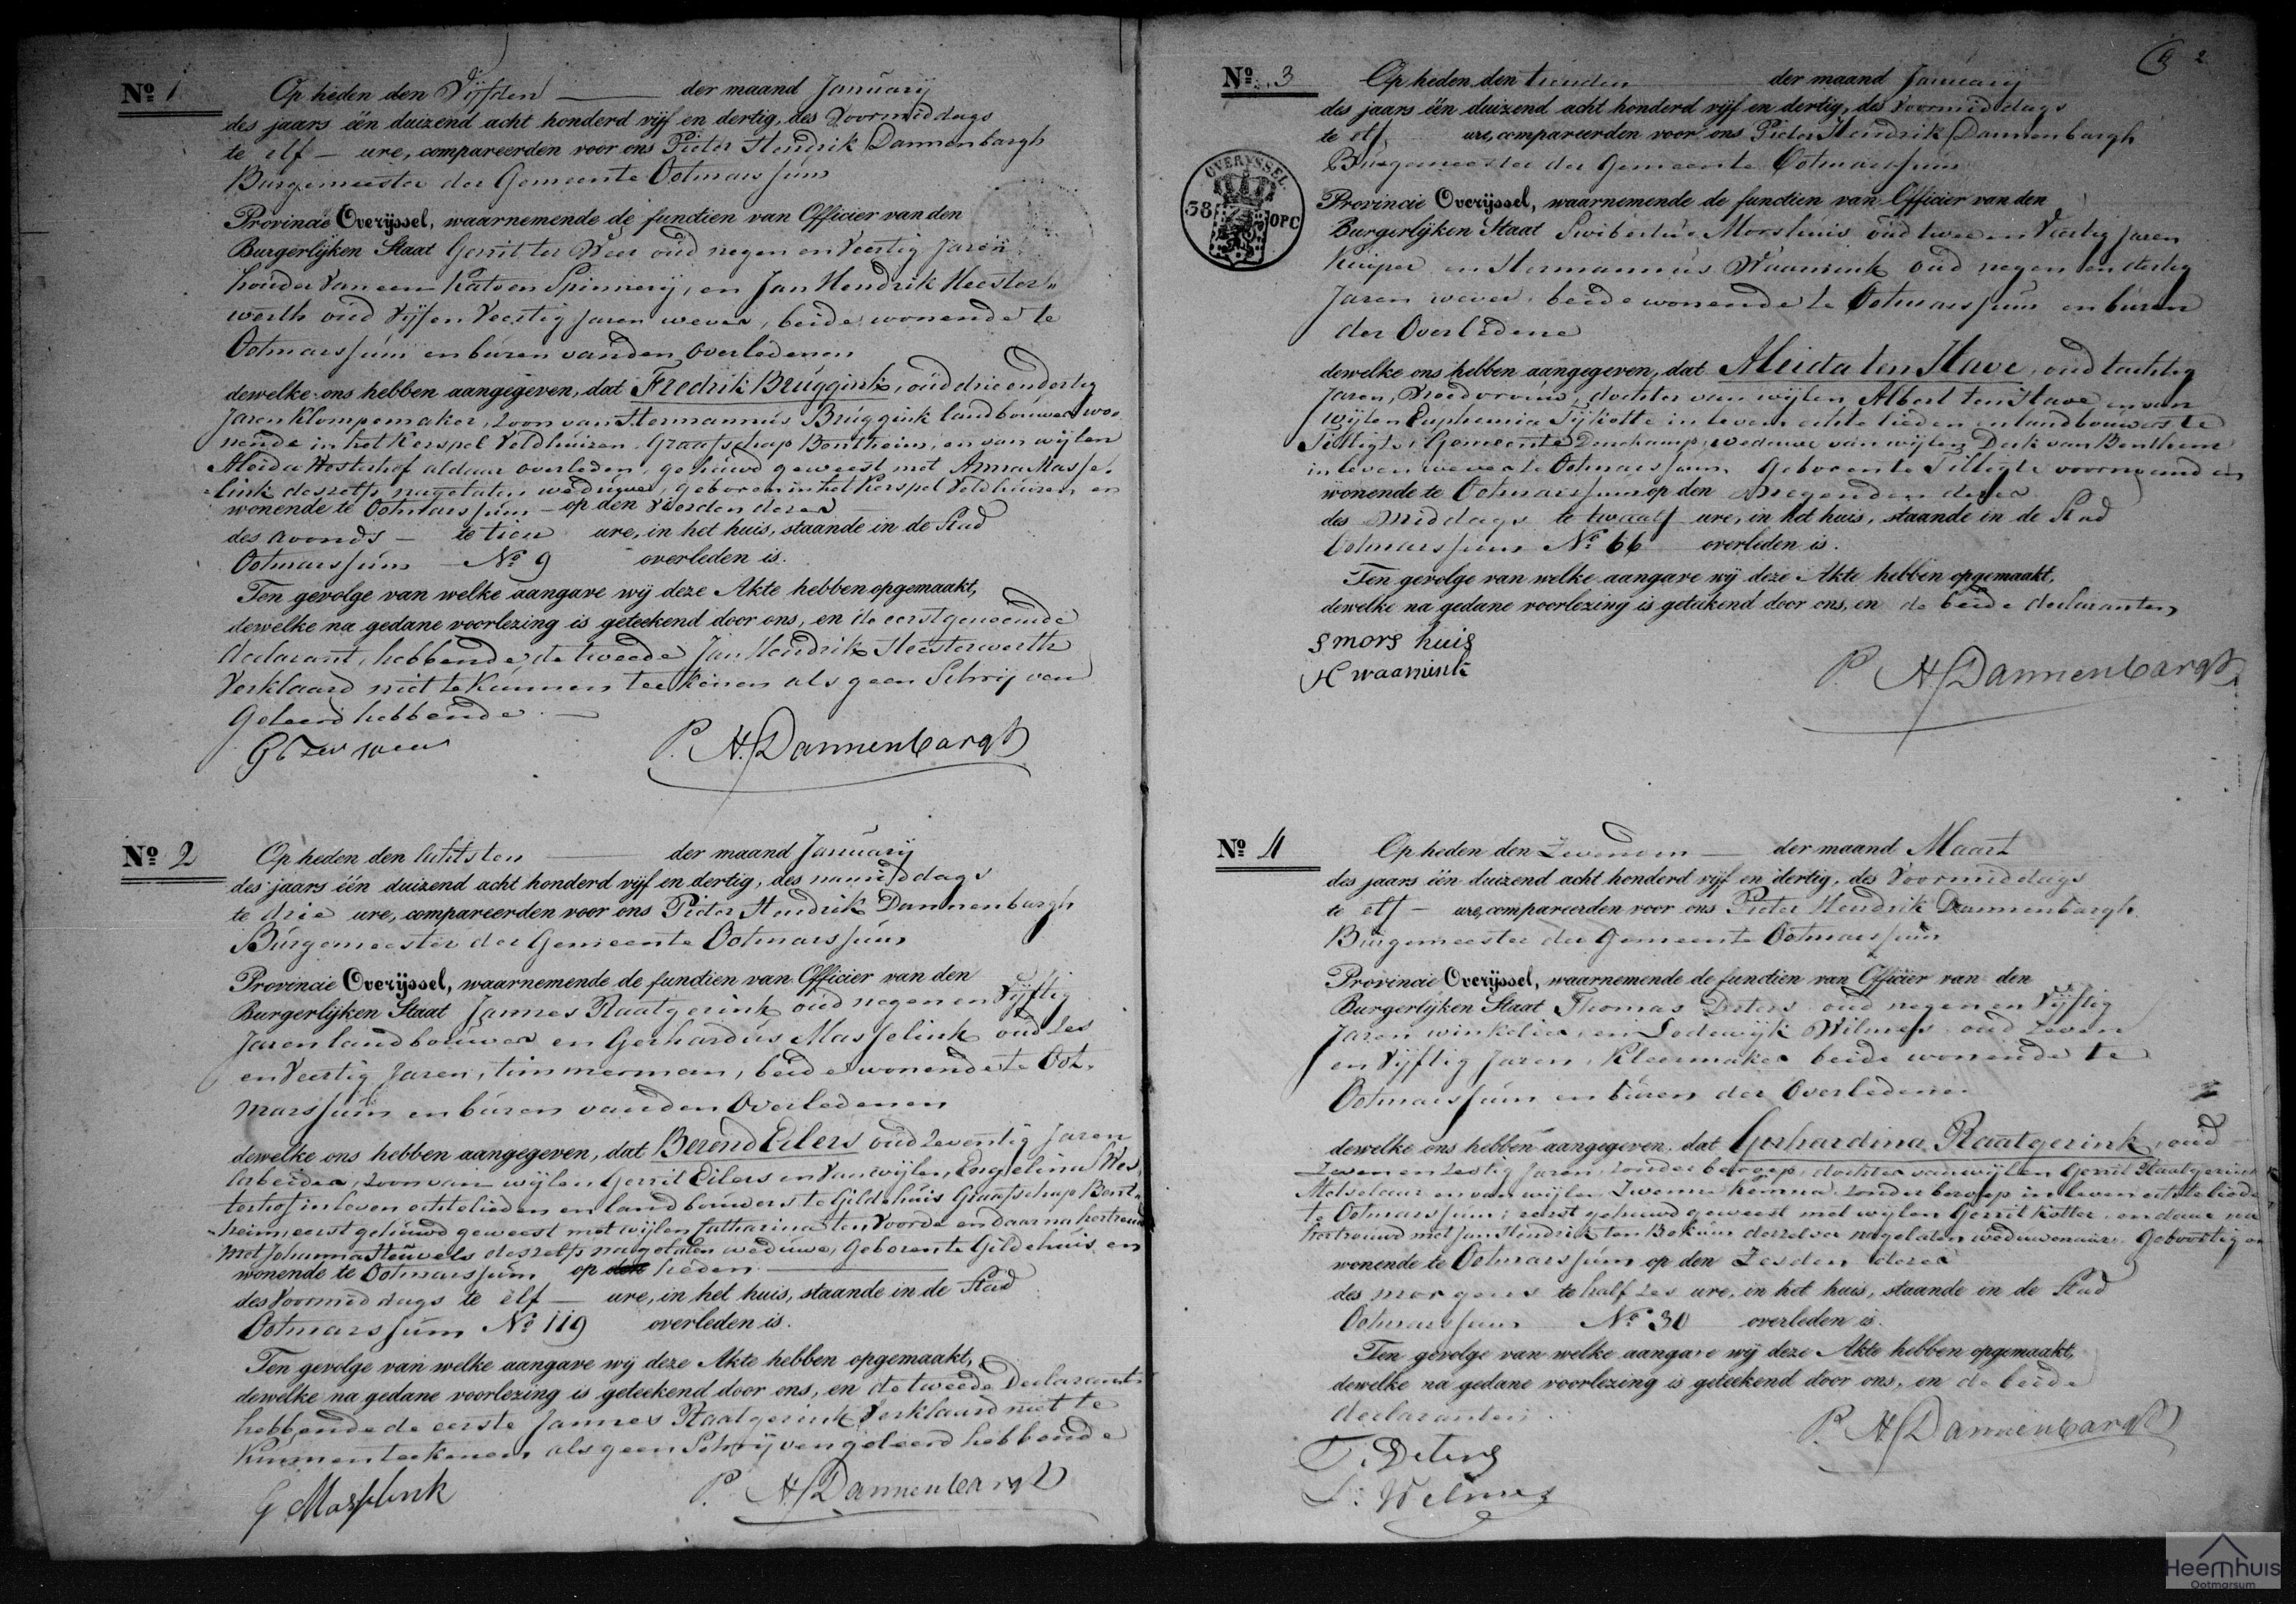 No 1
Op heden den Vijfden der maand Januarij
des jaars één duizend acht honderd vijf en dertig, des Voormiddags
te elf ure, compareerden voor ons Pieter Hendrik Dannenbargh
Burgemeester der Gemeente Ootmarssum
Provincie Overijssel, waarnemende de functien van Officier van den
Burgerlijken Staat Gerrit ter Weer oud negen en Veertig Jaren
houder van een Katoen Spinnerij, en Jan Hendrik Heester
werth oud Vijf en Veertig Jaren wever, beide wonende te
Ootmarssum en buren van den Overledenen
dewelke ons hebben aangegeven, dat Fredrik Bruggink, oud drie en dertig
Jaren Klompemaker, zoon van Hermannus Bruggink landbouwer wo-
nende in het Kerspel Veldhuizen, Graafschap Bentheim, en van wijlen
Aleida Westerhof aldaar overleden, gehuwd geweest met Anna Masse-
link deszelfs nagelaten weduwe, geboren in het Kerspel Veldhuizen en
wonende te Ootmarssum op den Vierden dezer
des avonds te tien ure, in het huis, staande in de Stad
Ootmarssum No 9 overleden is.
Ten gevolge van welke aangave wij deze Akte hebben opgemaakt,
dewelke na gedane voorlezing is geteekend door ons, en de eerstgenoemde
declarant, hebbende de tweede Jan Hendrik Heesterwerth
Verklaard niet te Kunnen teekenen als geen Schrijven
Geleerd hebbende
P. H. Dannenbargh
No 2
Op heden den achtsten der maand Januarij
des jaars één duizend acht honderd vijf en dertig, des namiddags
te drie ure, compareerden voor ons Pieter Hendrik Dannenbargh
Burgemeester der Gemeente Ootmarssum
Provincie Overijssel, waarnemende de functien van Officier van den
Burgerlijken Staat Jannes Raatgerink oud negen en Vijftig
Jaren landbouwer en Gerhardus Masselink oud Zes
en Veertig Jaren, timmerman, beide wonende te Oot-
marssum en buren van den Overledenen
dewelke ons hebben aangegeven, dat Berend Eilers oud Zeventig Jaren
arbeider, zoon van wijlen Gerrit Eilers en Van wijlen Engelina Wes-
terhof in leven echtelieden en landbouwers te Gildehuis Graafschap Bent-
heim, eerst gehuwd geweest met wijlen Catharina ten Voorde en daarna hertrouwd
met Johanna Heuvels deszelfs nagelaten weduwe, Geboren te Gildehuis en
wonende te Ootmarssum op den heden
des Voormiddags te elf ure, in het huis, staande in de Stad
Ootmarssum No 119 overleden is.
Ten gevolge van welke aangave wij deze Akte hebben opgemaakt,
dewelke na gedane voorlezing is geteekend door ons, en de tweede Declarant
hebbende de eerste Jannes Raatgerink Verklaard niet te
Kunnen teekenen als geen Schrijven geleerd hebbende
G Masselink
P. H. Dannenbargh
2
No 3
Op heden den tienden der maand Januarij
des jaars één duizend acht honderd vijf en dertig, des Voormiddags
te elf ure, compareerden voor ons Pieter Hendrik Dannenbargh
Burgemeester der Gemeente Ootmarssum
OVERYSSEL.
38 OPC
Provincie Overijssel, waarnemende de functien van Officier van den
Burgerlijken Staat Swibertus Morshuis oud twee en Veertig Jaren
Kuiper en Hermannus Waamink oud negen en dertig
Jaren wever, beide wonende te Ootmarssum en buren
der Overledene
dewelke ons hebben aangegeven, dat Aleida ten Have, oud tachtig
Jaren, Vroedvrouw, dochter van wijlen Albert ten Have en van
wijlen Euphemia in leven echtelieden en landbouwers te
Tilligte, Gemeente Denekamp, weduwe van wijlen Derk van Benthem
in leven wever te Ootmarssum Geboren te Tilligte voornoemd en
wonende te Ootmarssum op den negenden dezer
des middags te twaalf ure, in het huis, staande in de Stad
Ootmarssum No 66 overleden is.
Ten gevolge van welke aangave wij deze Akte hebben opgemaakt,
dewelke na gedane voorlezing is geteekend door ons, en de beide declaranten
S mors huis
H waamink
P. H. Dannenbargh
No 4
Op heden den Zevenden der maand Maart
des jaars één duizend acht honderd vijf en dertig, des Voormiddags
te elf ure, compareerden voor ons Pieter Hendrik Dannenbargh
Burgemeester der Gemeente Ootmarssum
Provincie Overijssel, waarnemende de functien van Officier van den
Burgerlijken Staat Thomas Deters oud negen en Vijftig
Jaren winkelier, en Lodewijk Wilmes oud Zeven
en Vijftig Jaren, Kleermaker beide wonende te
Ootmarssum en buren der Overledene
dewelke ons hebben aangegeven, dat Gerhardina Raatgerink, oud
Zeven en Zestig Jaren, zonder beroep, dochter van wijlen Gerrit Raatgerink
Metselaar en van wijlen Zwenne Kemna zonder beroep in leven echteliede
te Ootmarssum; eerst gehuwd geweest met wijlen Gerrit Kotter en daar na
hertrouwd met Jan Hendrik ten Bokum derzelver nagelaten weduwenaar. Geboortig en
wonende te Ootmarssum op den Zesden dezer
des morgens te half zes ure, in het huis, staande in de Stad
Ootmarssum No 30 overleden is.
Ten gevolge van welke aangave wij deze Akte hebben opgemaakt,
dewelke na gedane voorlezing is geteekend door ons, en de beide
declaranten
P. H. Dannenbargh
T. Deters
L. Wilmes
Heemhuis
Ootmarsum